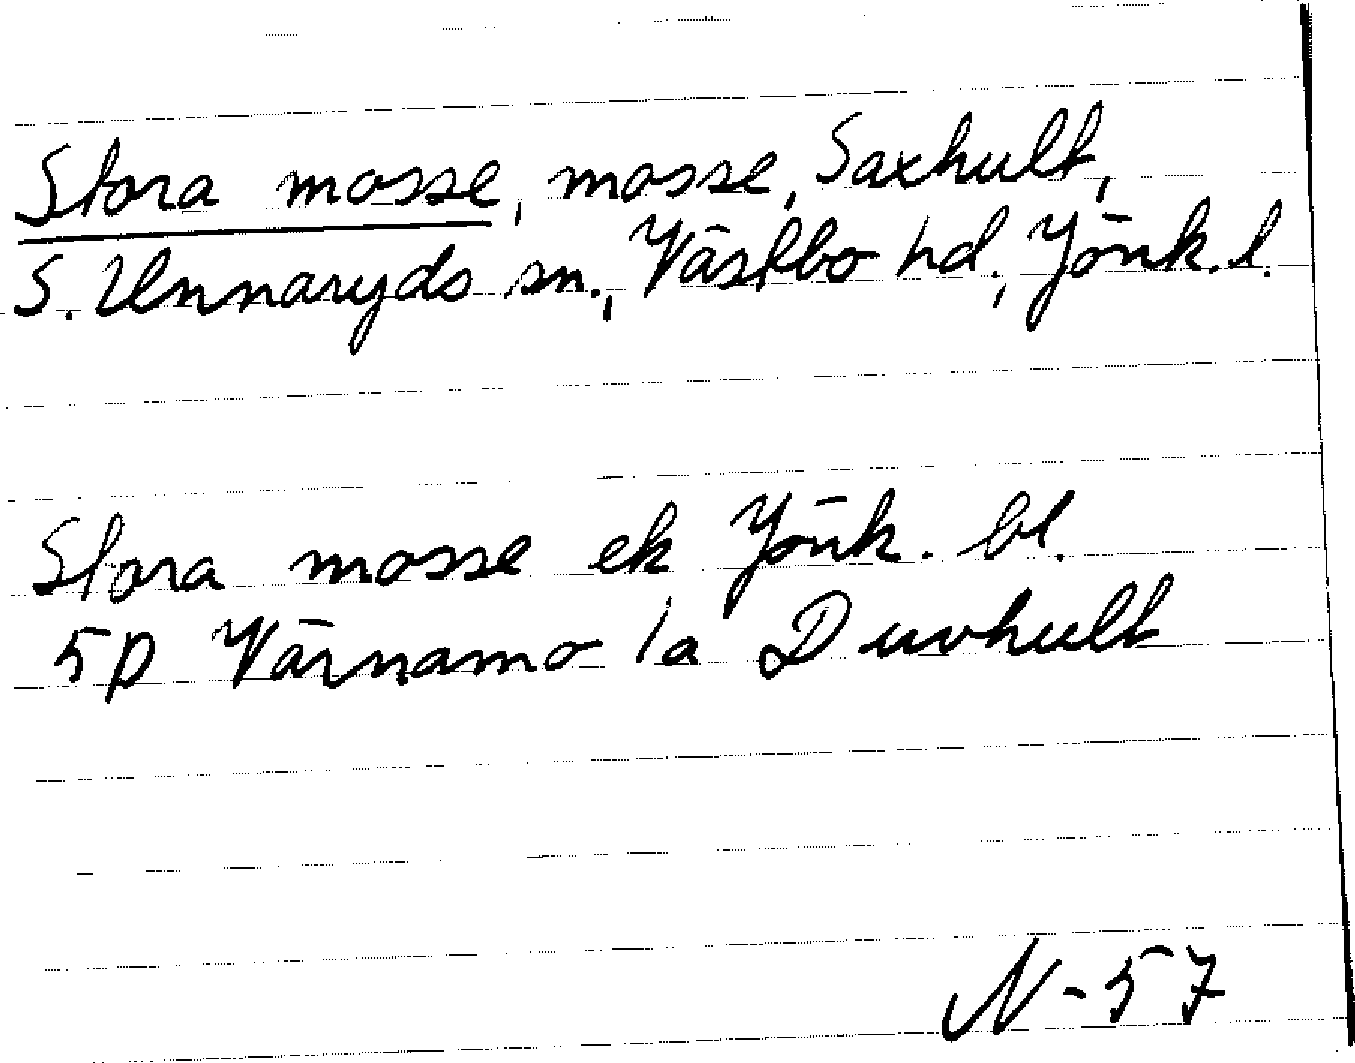 Stora mosse, mosse, Saxhult,
S. Unnaryds sn., Västbo hd, Jönk. l.
Stora mosse ek Jönk. bl.
5p Värnamo la Duvhult
N-57